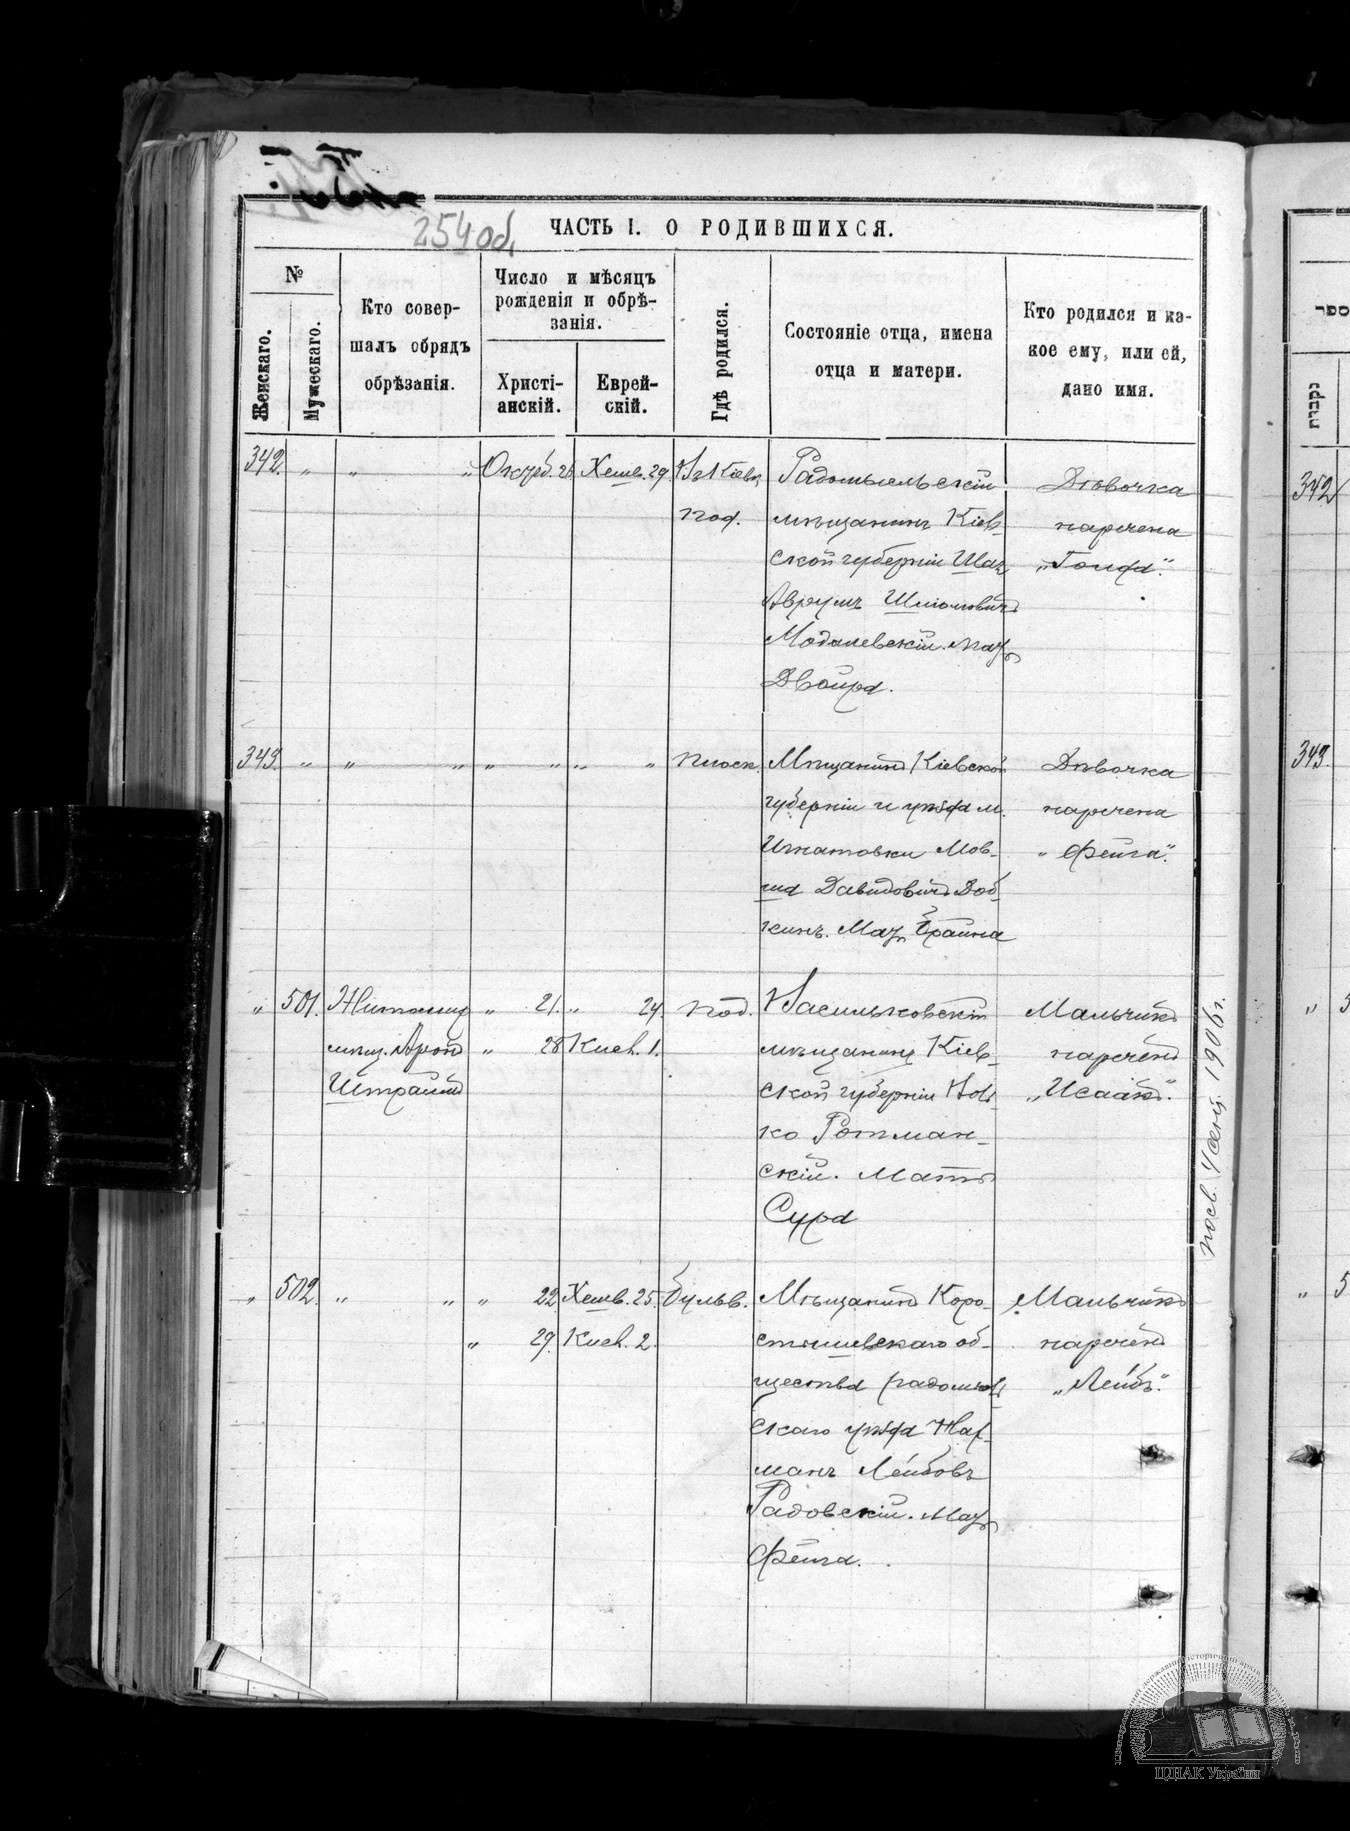 254 об.
ЧАСТЬ I. О РОДИВШИХСЯ.
№
Женскаго.
Мужескаго.
Кто совер-
шалъ обрядъ
обрѣзанія.
Число и мѣсяцъ
рожденія и обрѣ-
занія.
Христі-
анскій.
Еврей-
скій.
Гдѣ родился.
Состояніе отца, имена
отца и матери.
Кто родился и ка-
кое ему, или ей,
дано имя.
342. „ „ „ Октяб. Хешв. 29.
под.
Радомысльскій
мѣщанинъ Кіев-
ской губерніи
Аврумъ Шліомовичъ
Модалевскій. Мать
Двойра.
Дѣвочка
наречена
343. „ „ „ „ „ „ „ Плоск.
Мѣщанинъ Кіевской
губерніи и уѣзда м.
Игнатовки Мов-
ша Давидовичъ Боб-
кинъ. Мать Брайна
Дѣвочка
наречена
„Фейга".
„ 501. Житомир. „ 21. „ 24. под.
мѣщ. Аронъ „ 28 Кисл. 1.
Штраймъ
Васильковскій
мѣщанинъ Кіев-
ской губерніи
Ротман-
скій. Мать
Сура
Мальчикъ
нареченъ
„Исаакъ".
„ 502. „ „ „ 22 Хешв. 25. бульв.
„ 29. Кисл. 2.
Мѣщанинъ Коро-
стышевскаго об-
щества радомысль-
скаго уѣзда
манъ Лейбовъ
Радовскій. Мать
Фейга.
Мальчикъ
нареченъ
„Лейбъ".
1906 г.
342
343.
„
„
ספר
נקבות
ЦДІАК України